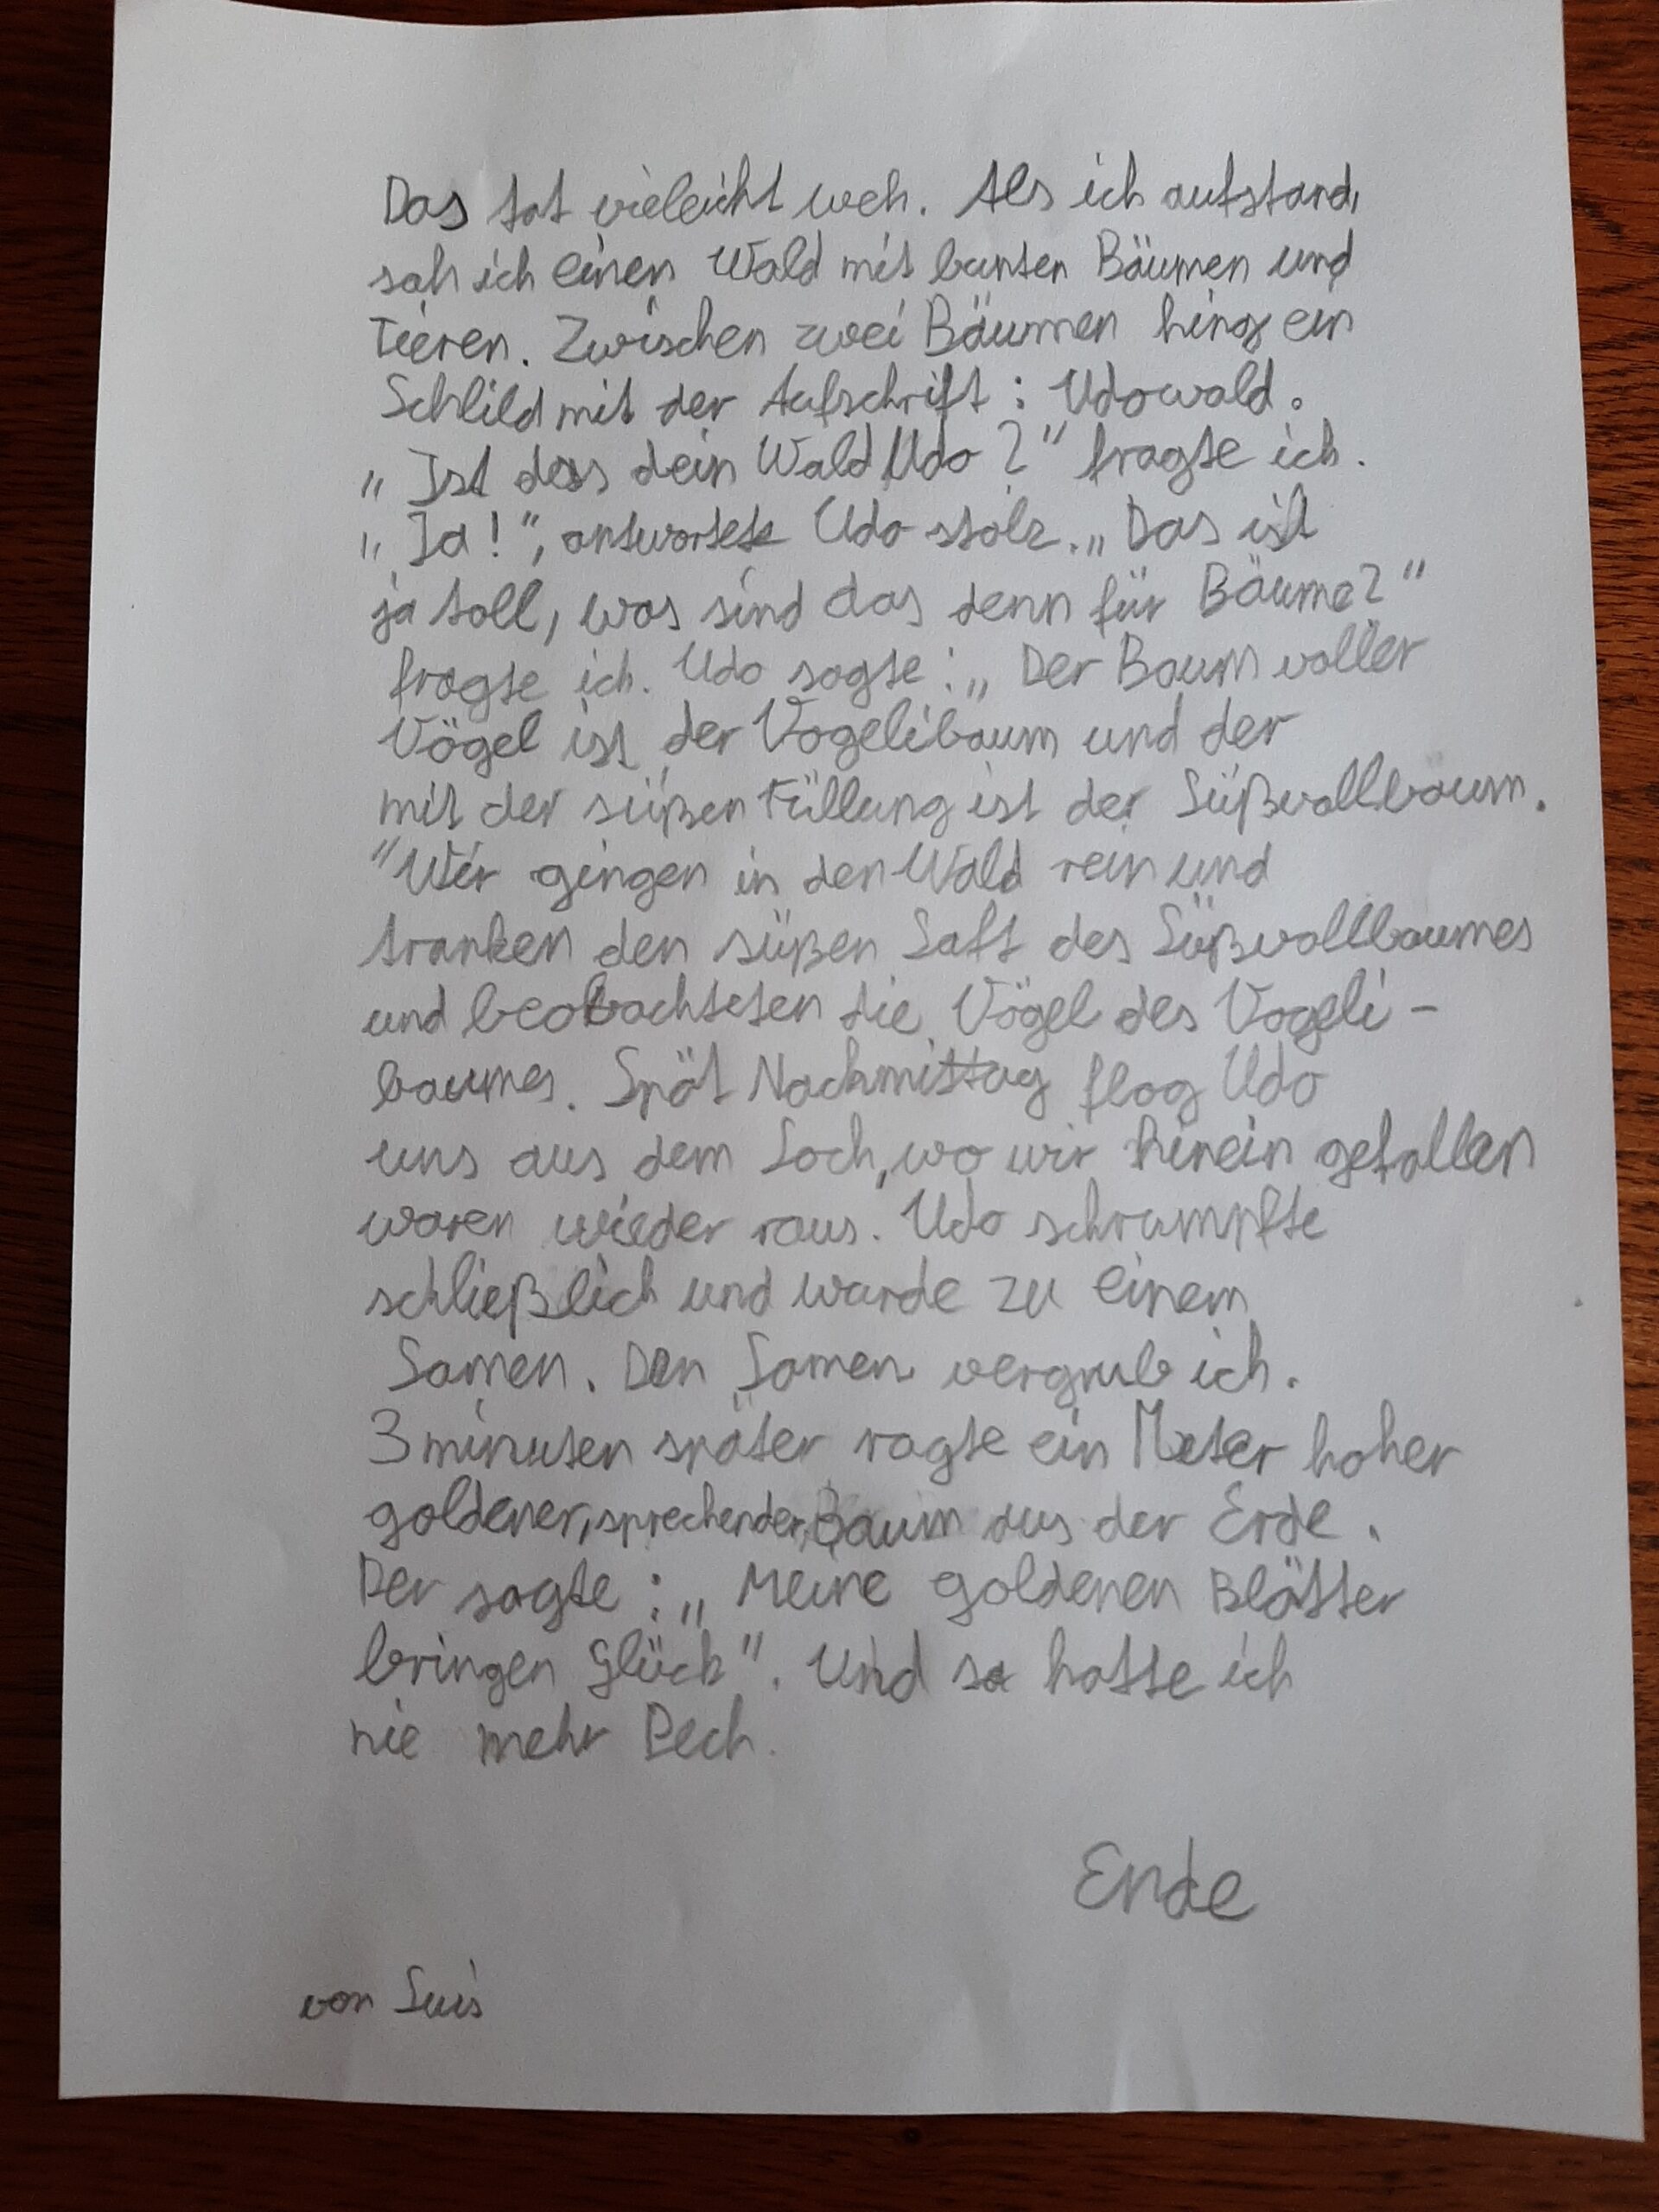 Das tat vieleicht weh. Als ich aufstand,
sah ich einen Wald mit bunten Bäumen und
Tieren. Zwischen zwei Bäumen hing ein
Schlild mit der Aufschrift: Udowald.
„Ist das dein Wald Udo?“ fragte ich.
„Ja!“, antwortete Udo stolz. „Das ist
ja toll, was sind das denn für Bäume?“
fragte ich. Udo sagte: „Der Baum voller
Vögel ist der Vogelibaum und der
mit der süßen Füllung ist der Süßvollbaum.
“Wir gingen in den Wald rein und
tranken den süßen Saft des Süßvollbaumes
und beobachteten die Vögel des Vogeli-
baumes. Spät Nachmittag flog Udo
uns aus dem Loch, wo wir hinein gefallen
waren wieder raus. Udo schrumpfte
schließlich und wurde zu einem
Samen. Den Samen vergrub ich.
3 minuten später ragte ein Meter hoher
goldener, sprechender, Baum aus der Erde.
Der sagte: „Meine goldenen Blätter
bringen Glück“. Und so hatte ich
nie mehr Pech.
Ende
von Luis